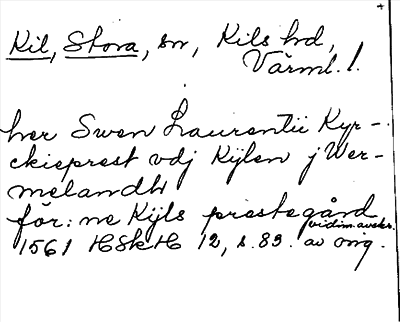 Kil, Stora, sn, Kils hd,
Värml. l.
her Swen Laurentii Kyr-
ckieprest vdj Kijlen j Wer-
melandh
för: ne Kijls prestegård
1561 HSkH 12, s. 83. vidim. avskr. av orig.